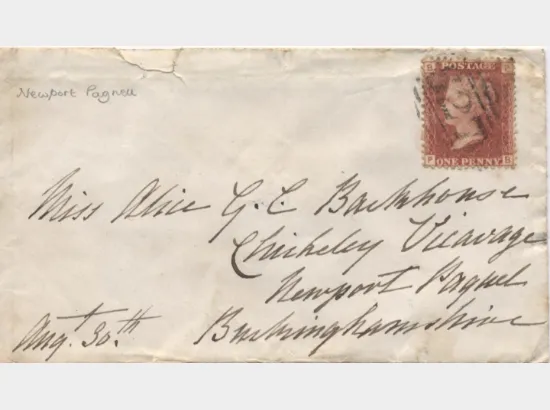 Newport Pagnell
POSTAGE
P ONE PENNY B
Miss Alice G. C Backhouse
Chicheley Vicarage
Newport Pagnel
Augt 30th. Buckinghamshire